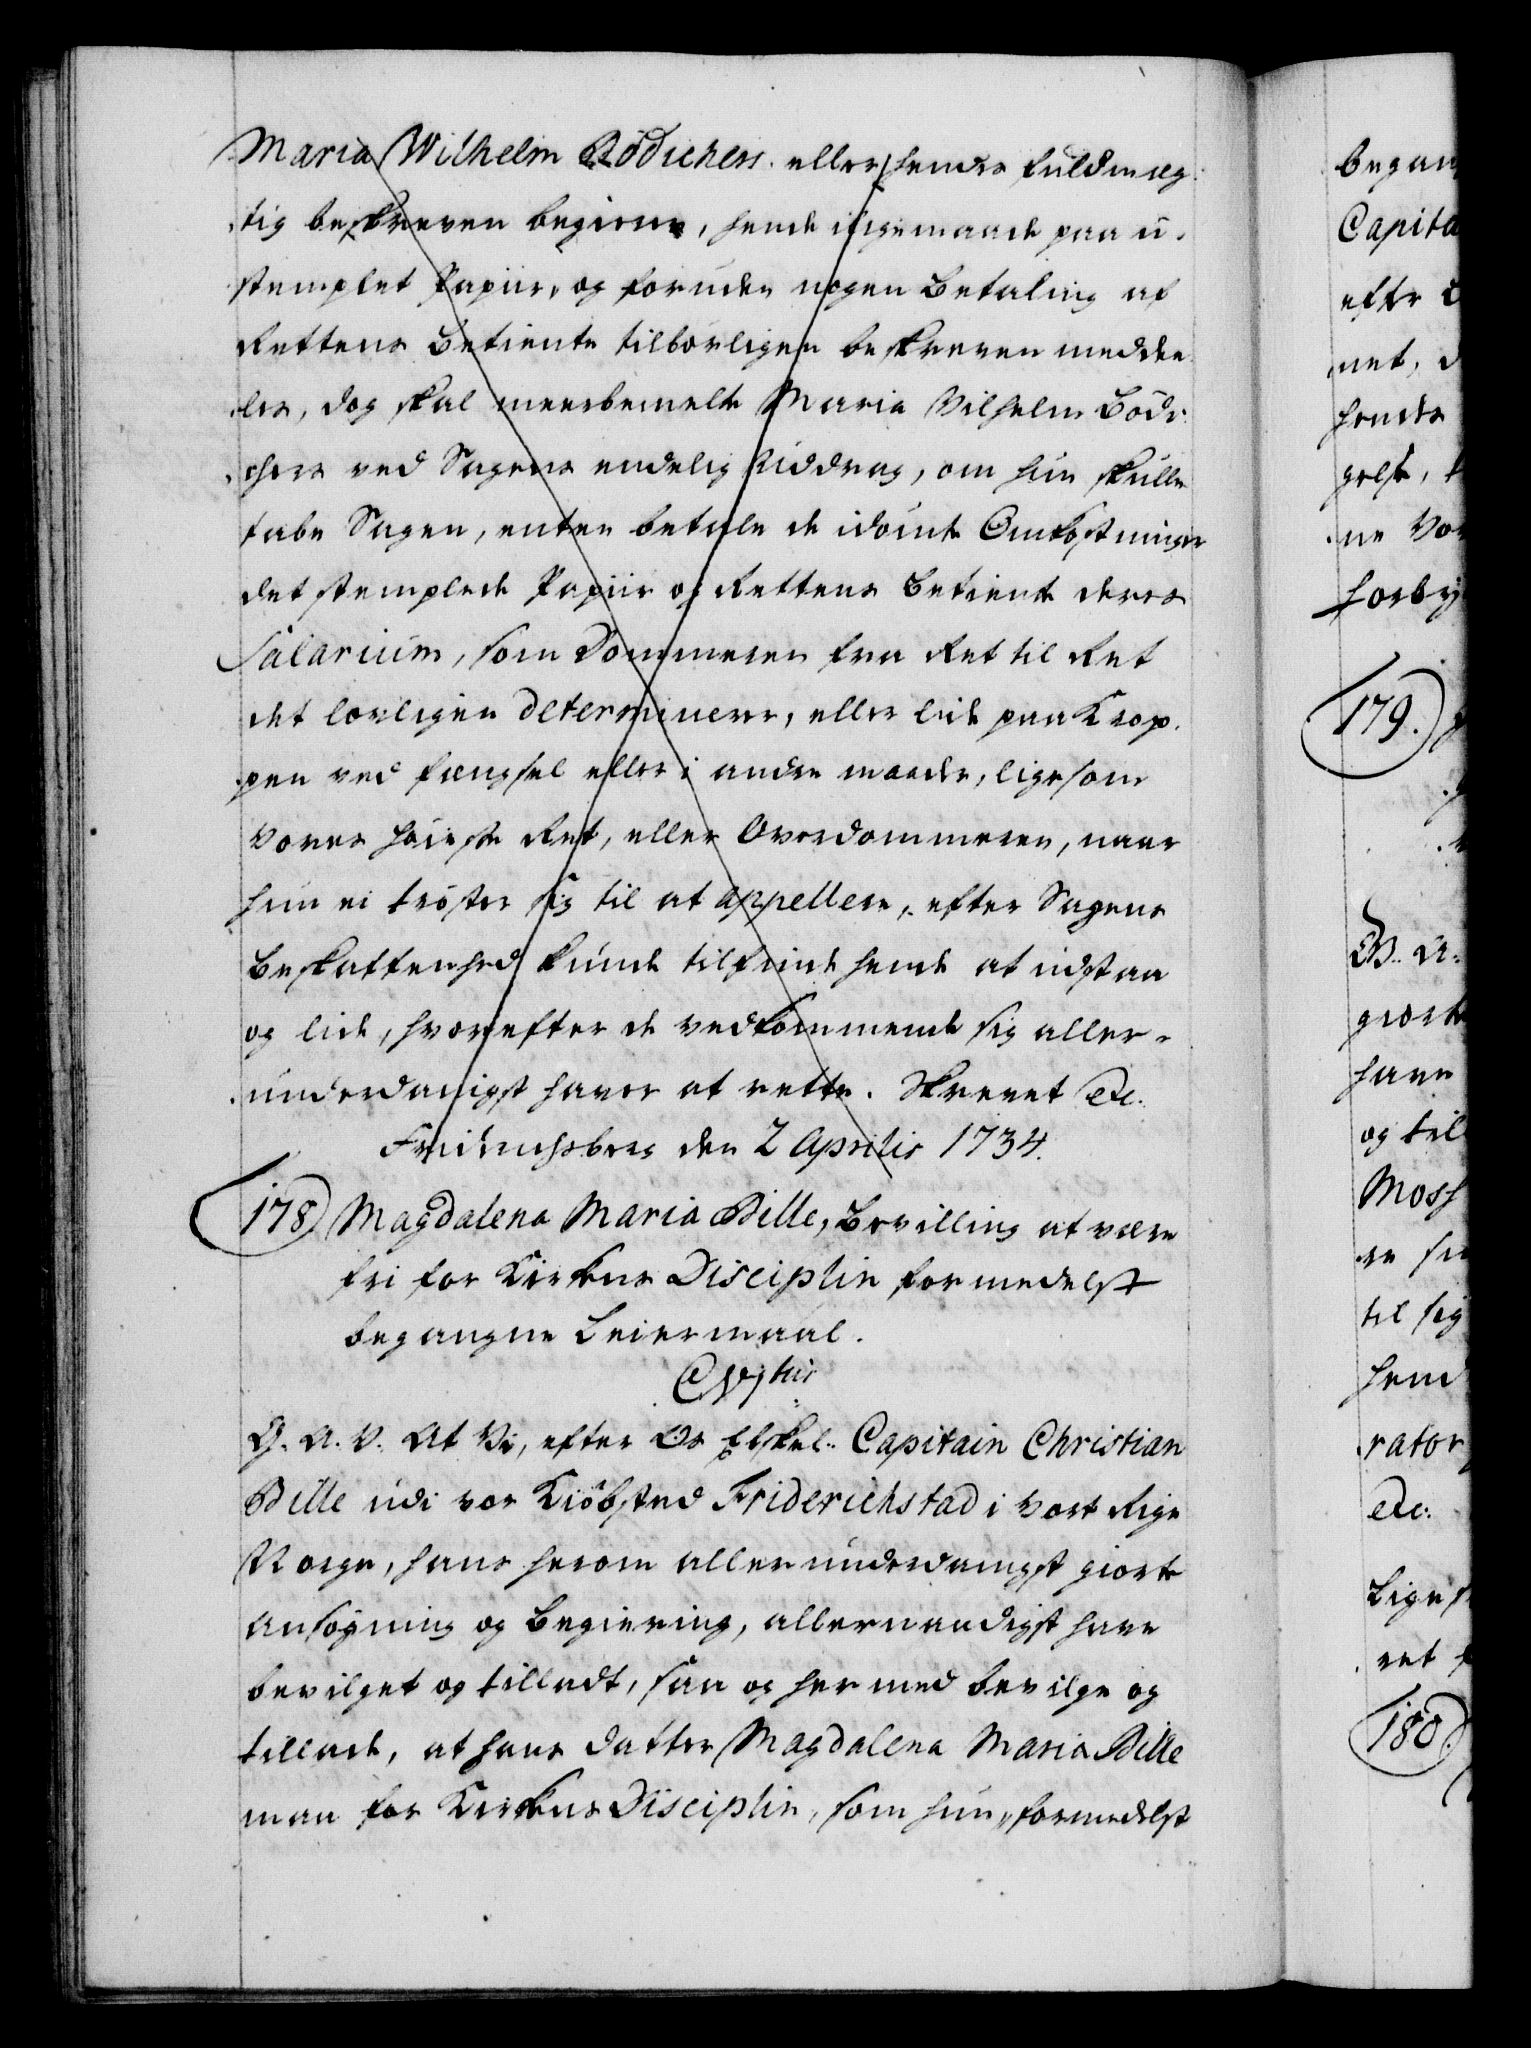 Maria Wilhelm Bödichers eller hendes fuldmæg-
tig beskreven begiere, hende ligemaade paa u-
stemplet Papiir, og foruden nogen Betaling af
Rettens Betiente tilbørligen beskreven meddee-
les, dog skal meerbemelte Maria Wilhelm Bödi-
chers ved Sagens endelig Uddrag, om hun skulle
tabe Sagen, enten betale de idömte Omkostninger
det stemplede Papiir og Rettens Betiente deres
Salarium, som Dommeren fra Ret til Ret
det lovligen determinerer, eller lide paa Krop-
pen ved fængsel eller i andre maader, ligesom
Vores höieste Ret, eller Overdommeren, naar
hun ei trøster sig til at appellere, efter Sagens
Beskaffenhed kunde tilfinde hende at udstaa
og lide, hvorefter de vedkommende sig aller-
underdanigst haver at rette. Skrevet etc.
Friderichsberg den 2 Aprilis 1734.
178 Magdalena Maria Bille, Bevilling at være
fri for Kirkens Disciplin formedelst
begangne Leiermaal.
C 6tus
G. A. V. At Vi, efter Os Elskel. Capitain Christian
Bille udi vor Kiöbsted Friderichstad i Vort Rige
Norge, hans herom allerunderdanigst giorte
Ansøgning og Begiering, allernaadigst have
bevilget og tilladt, saa og hermed bevilge og
tillade, at hans Datter Magdalena Maria Bille
maa for Kirkens Disciplin, som hun, formedelst
began
Capita
efter
net, d
hendes
gelse,
ne Vor
forby
179.
G. A.
giorte
have
og til
Moss
re
til sig
hend
rator
etc:
Lige
ret
180